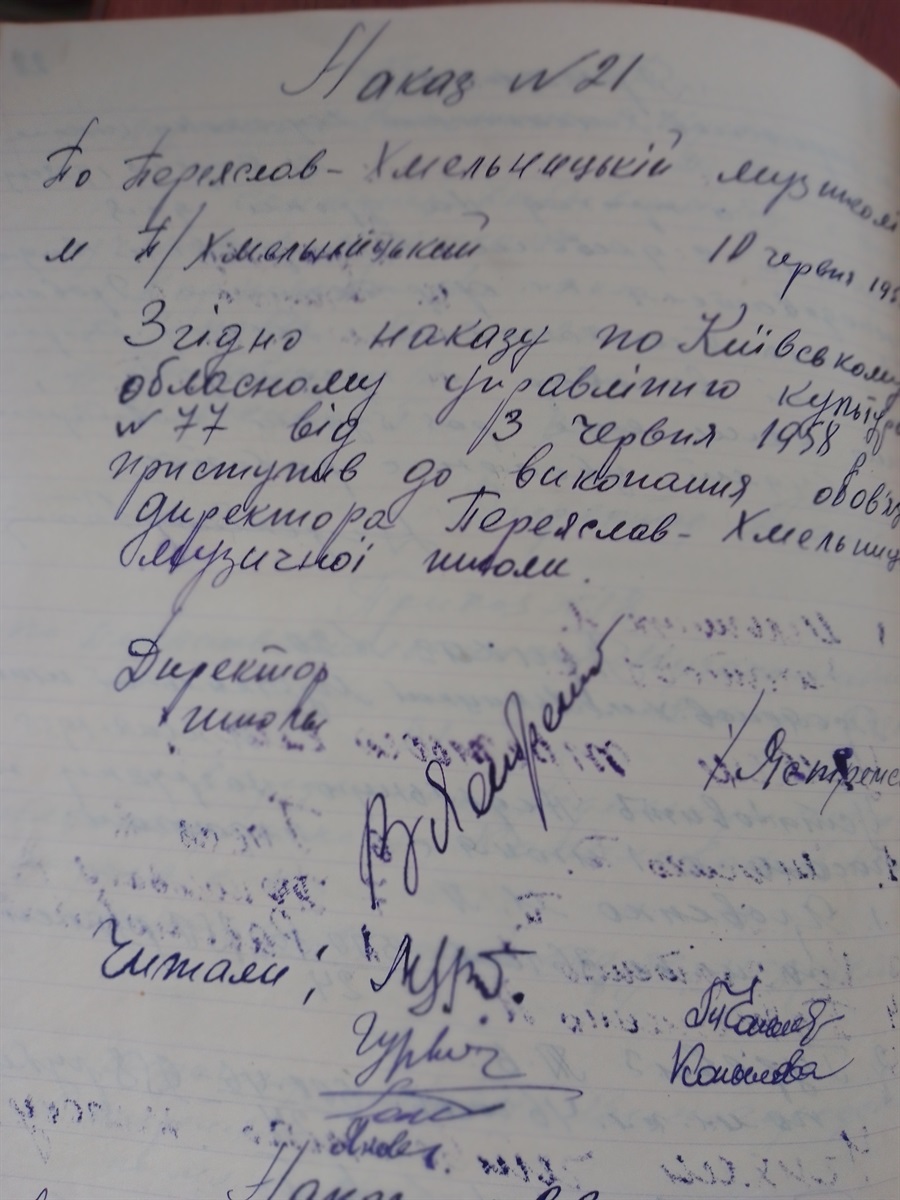 Наказ №21
По Переяслав-Хмельницькій музшколі
м П/Хмельницький 10 червня 195
Згідно наказу по Київському
обласному управлінню культур
№77 від 3 червня 1958
приступив до виконання обов'яз
директора Переяслав-Хмельниц
музичної школи.
Директор
школи
/Ястремс
Читали:
Гурвіч
Копилова
Янов
Наказ